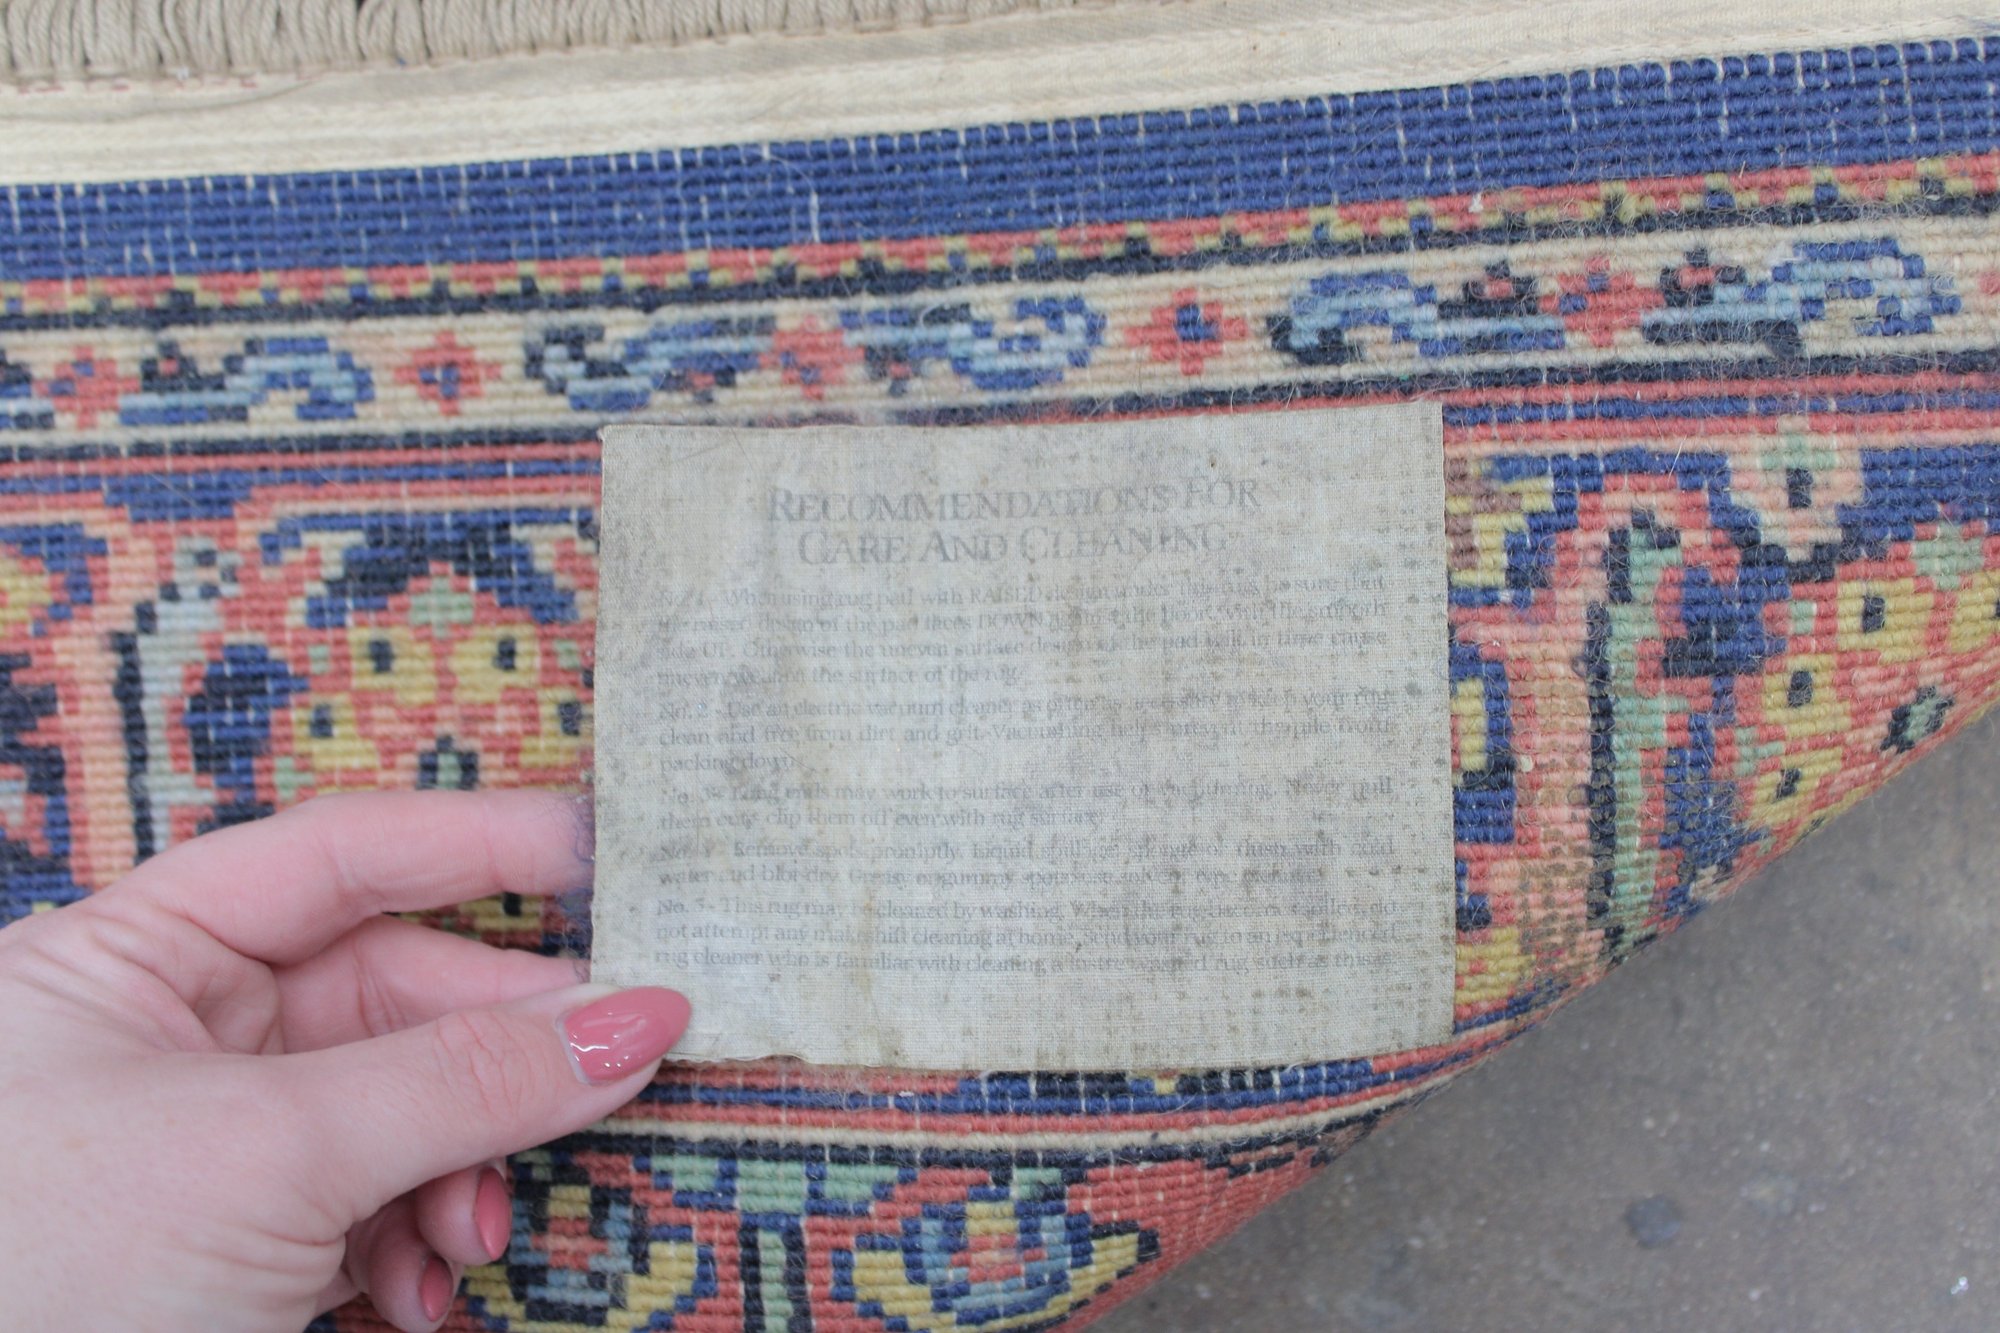 RECOMMENDATIONS FOR
CARE AND CLEANING
No. 1 - When using rug pad with RAISED design under this rug be sure that
the raised design of the pad faces DOWN against the floor, with the smooth
side UP. Otherwise the uneven surface design of the pad will in time cause
uneven wear on the surface of the rug.
No. 2 - Use an electric vacuum cleaner as often as necessary to keep your rug
clean and free from dirt and grit. Vacuuming helps prevent the pile from
packing down.
No. 3 - Long ends may work to surface after use or vacuuming. Never pull
them out, clip them off even with rug surface.
No. 4 - Remove spots promptly. Liquid spillage, sponge or flush with cold
water and blot dry. Greasy or gummy spots use solvent type
No. 5 - This rug may be cleaned by washing. When the rug becomes soiled, do
not attempt any makeshift cleaning at home. Send your rug to an experienced
rug cleaner who is familiar with cleaning a lustre washed rug such as this is